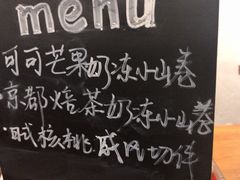 menu
可可芒果奶冻小山卷
京都焙茶奶冻小山卷
核桃戚风切件